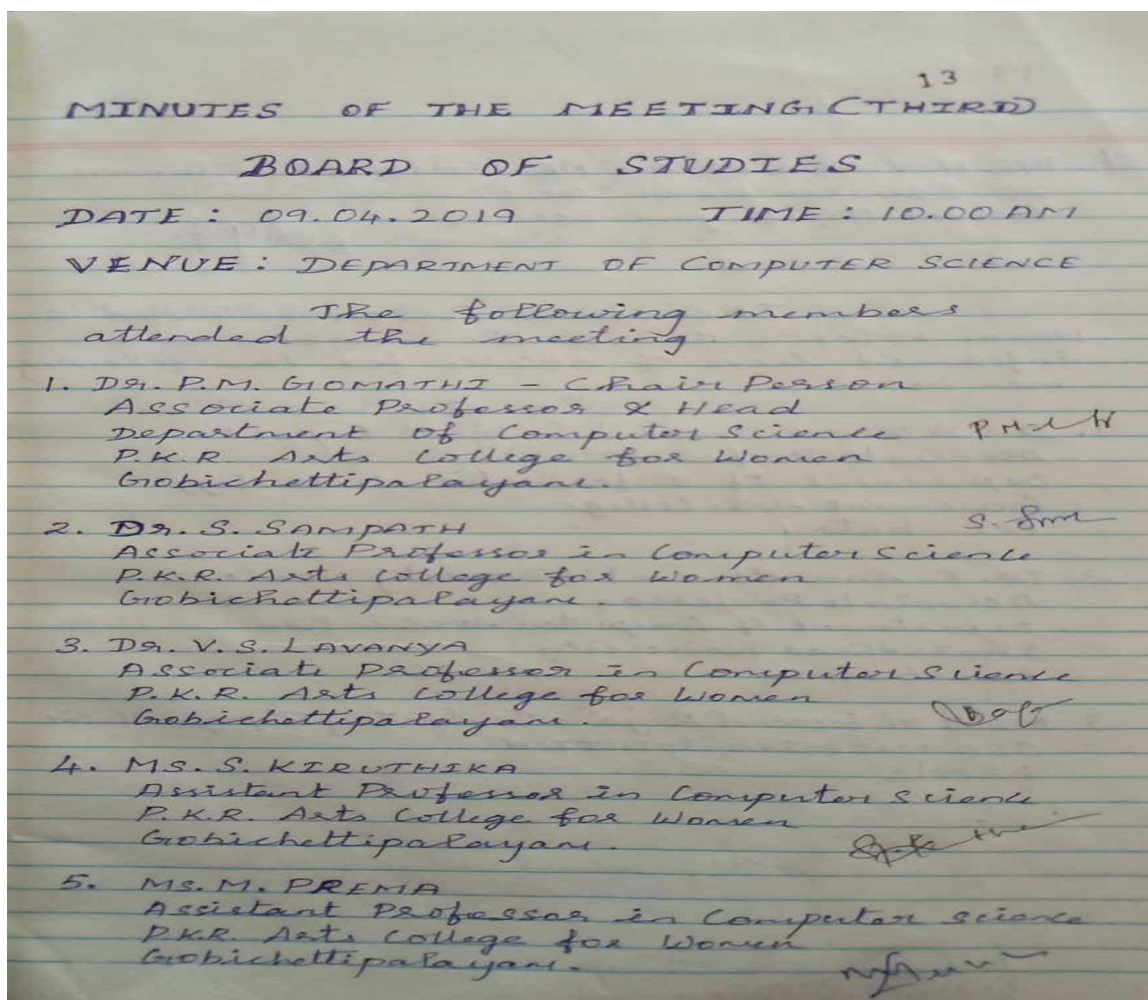 13
MINUTES OF THE MEETING (THIRD)
BOARD OF STUDIES
DATE : 09.04.2019 TIME : 10.00 AM
VENUE : DEPARTMENT OF COMPUTER SCIENCE
The following members
attended the meeting.
1. Dr. P.M. GOMATHI - Chair Person
Associate Professor & Head
Department of Computer Science
P.K.R. Arts College for Women
Gobichettipalayam.
2. Dr. S. SAMPATH
Associate Professor in Computer Science
P.K.R. Arts College for Women
Gobichettipalayam.
3. Dr. V. S. LAVANYA
Associate Professor in Computer Science
P.K.R. Arts College for Women
Gobichettipalayam.
4. MS. S. KIRUTHIKA
Assistant Professor in Computer Science
P.K.R. Arts College for Women
Gobichettipalayam.
5. Ms. M. PREMA
Assistant Professor in Computer Science
P.K.R. Arts College for Women
Gobichettipalayam.